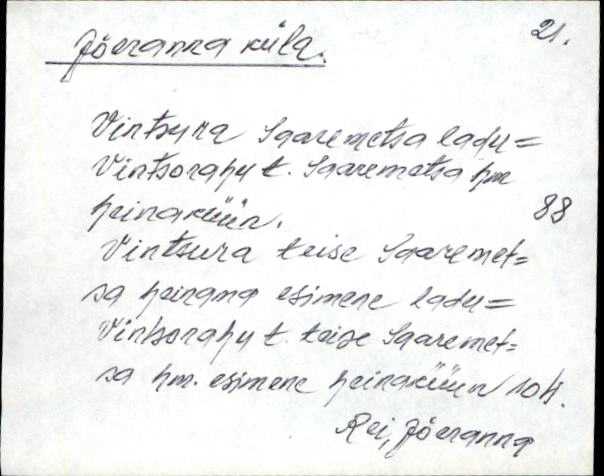 Jõeranna küla.
21.
Vintsura Saaremetsa ladu =
Vintsorahu t. Saaremetsa hm
heinaküün.
88
Vintsura teise Saaremet=
sa heinama esimene ladu =
Vintsorahu t. teise Saaremet=
sa hm. esimene heinaküün
Rei, Jõeranna